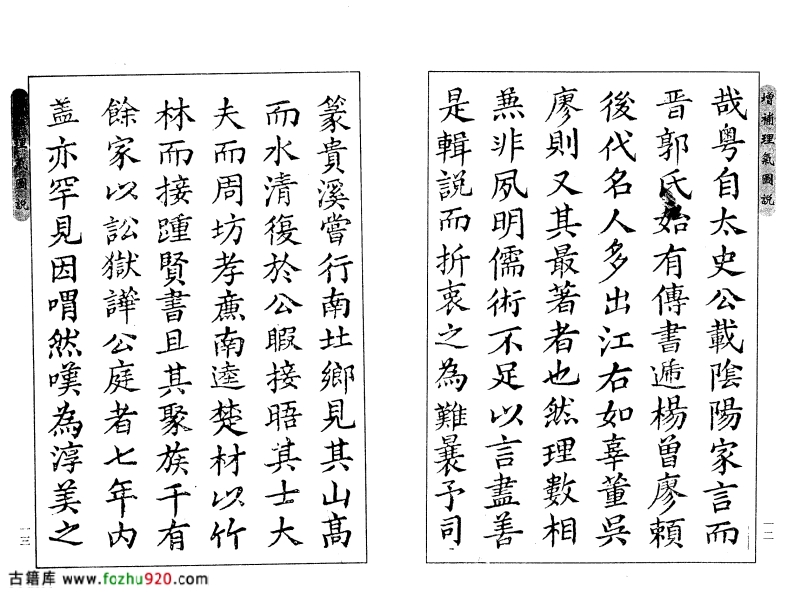 增補理氣圖説
哉粤自太史公載陰陽家言而
晋郭氏始有傳書逓楊曽廖頼
後代名人多出江右如辜董吳
廖則又其最著者也然理數相
兼非夙明儒術不足以言盡善
是輯説而折衷之為難曩予司
一二
篆貴溪嘗行南北鄉見其山髙
而水清復於公暇接晤其士大
夫而周坊孝亷南逵楚材以竹
林而接踵賢書且其聚族千有
餘家以訟獄譁公庭者七年内
盖亦罕見因喟然嘆為淳美之
理氣圖説
一三
古籍库 www.fozhu920.com